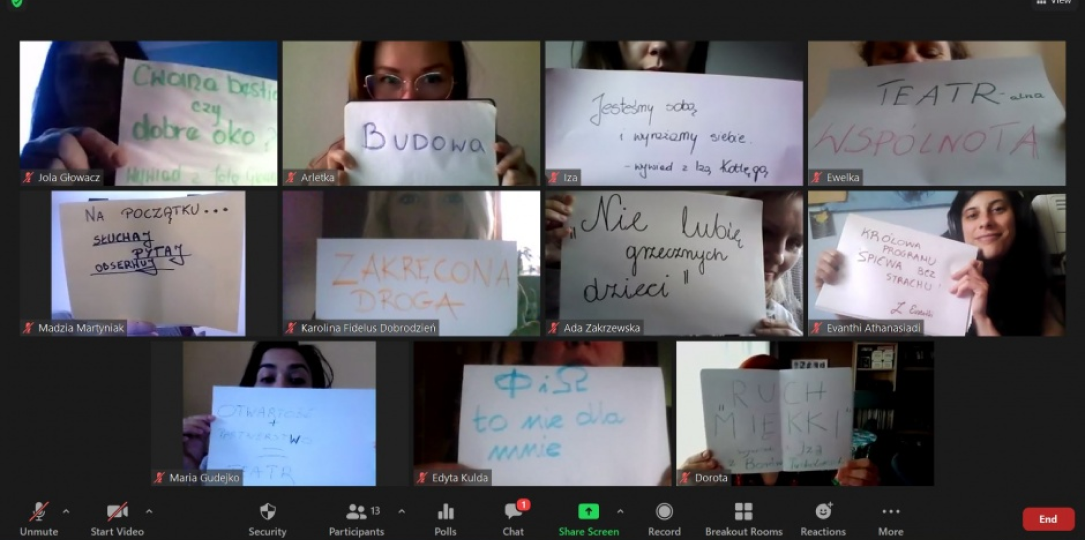 View
Chytra bestia
czy
dobre oko?
Wywiad z Jolą
Jola Głowacz
BUDOWA
Arletka
Jesteśmy sobą
i wyrażamy siebie.
- wywiad z Izą
Iza
TEATR-alna
WSPÓLNOTA
Ewelka
NA POCZĄTKU...
SŁUCHAJ
PYTAJ
OBSERWUJ
Madzia Martyniak
ZAKRĘCONA
DROGA
Karolina Fidelus Dobrodzień
"Nie lubię
grzecznych
dzieci"
Ada Zakrzewska
KRÓLOWA
PROGRAMU
ŚPIEWA BEZ
STRACHU!
Evanthi Athanasiadi
OTWARTOŚĆ
+
PARTNERSTWO
=
TEATR
Maria Gudejko
Φ i Ω
to nie dla
mnie
Edyta Kulda
"RUCH
MIĘKKI"
Dorota
Unmute
Start Video
Security
Participants
13
Polls
Chat
1
Share Screen
Record
Breakout Rooms
Reactions
More
End